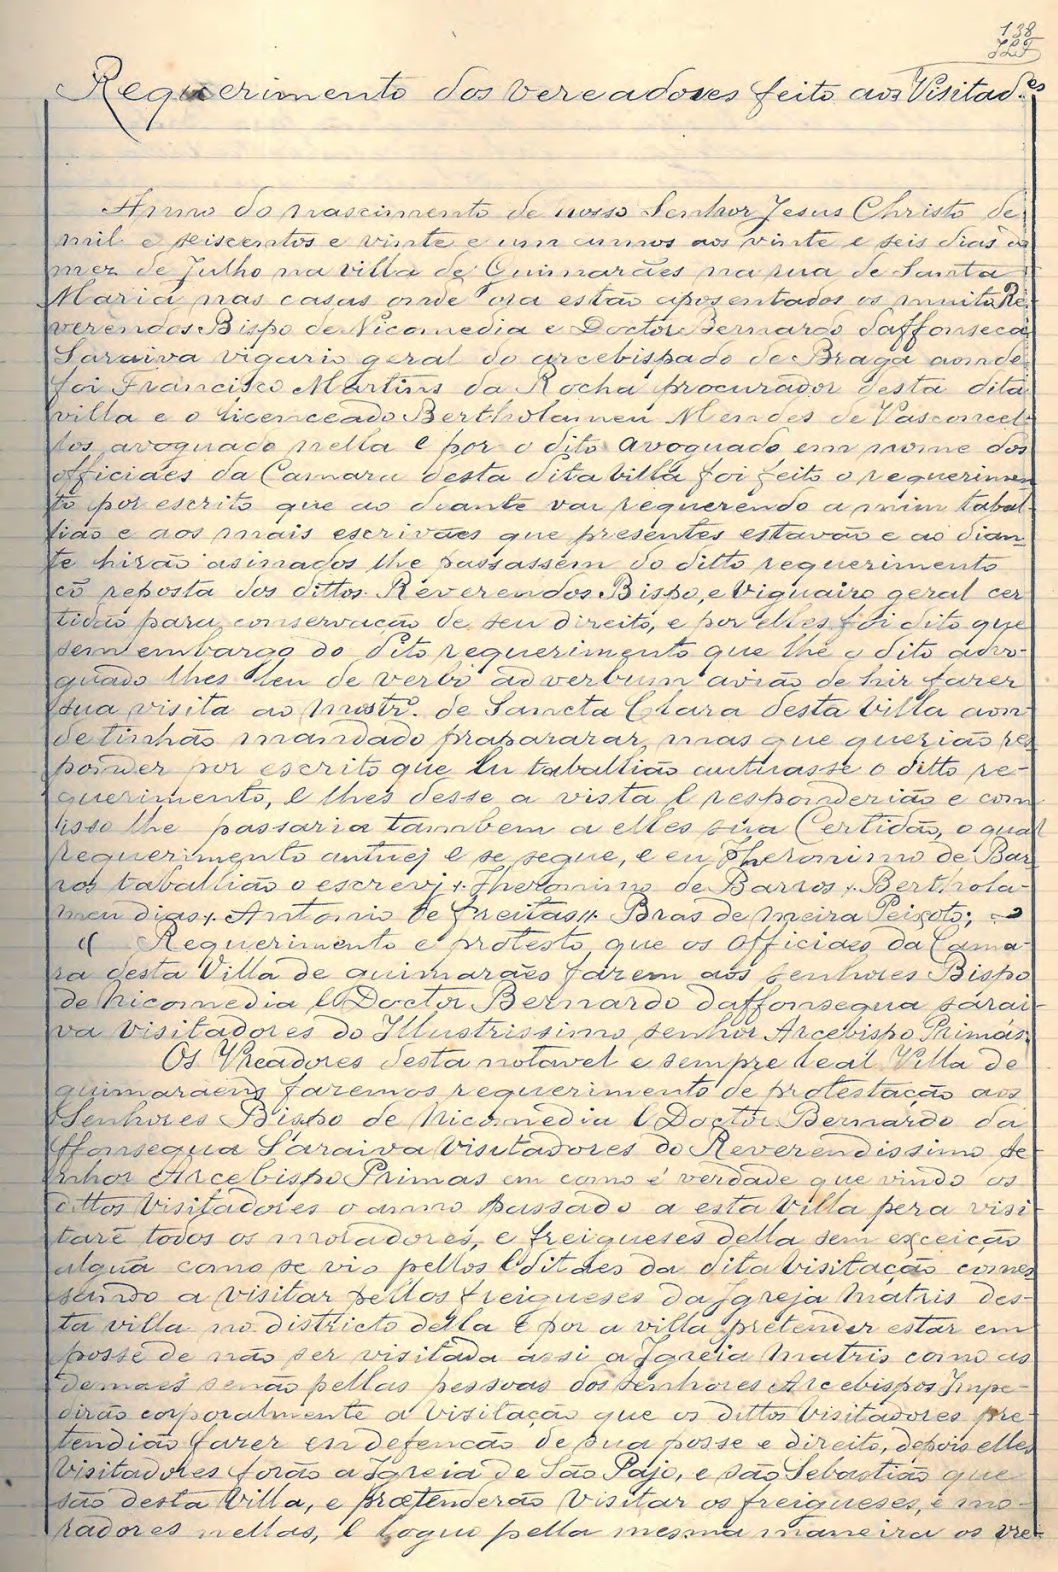 138
Requerimento dos vereadores feito aos Visitad.es
Anno do nascimento de nosso Senhor Jesus Christo de
mil e seiscentos e vinte e um annos aos vinte e seis dias do
mez de Julho na villa de Guimarães na rua de Santa
Maria, nas casas onde ora estão aposentados os muito Re-
verendos Bispo de Nicomedia e Doctor Bernardo daffonseca
Saraiva vigario geral do arcebispado de Braga aonde
foi Francisco Martins da Rocha procurador desta dita
villa e o licenceado Bertholameu Mendes de Vasconcel-
los avoguado nella e por o dito avoguado em nome dos
officiaes da Camara desta dita villa foi feito o requerimen
to por escrito que ao diante vai requerendo a mim tabal-
lião e aos mais escrivães que presentes estavão e ao dian-
te hirão asinados lhe passassem do ditto requerimento
cõ reposta dos dittos Reverendos Bispo, e Viguairo geral cer
tidão para conservacão de seu direito, e por elles foi dito que
sem embargo do dito requerimento que lhe o dito avo-
guado lhes leu de verbo ad verbum avião de hir fazer
sua visita ao mostrº. de Sancta Clara desta Villa aon
de tinhão mandado prapararar, mas que querião res
ponder por escrito que eu taballião autuasse o ditto re-
querimento, e lhes desse a vista e responderião e com
isso lhe passaria tambem a elles sua Certidão, o qual
requerimento autuej e se segue, e eu Jheronimo de Bar
ros taballião o escrevj + Jheronimo de Barros + Berthola-
meu dias + Antonio de freitas + Bras de meira Peixoto;
(( Requerimento e protesto, que os officiaes da Cama-
ra desta Villa de guimarães fazem aos senhores Bispo
de Nicomedia e Doctor Bernardo daffonsequa sarai-
va visitadores do Illustrissimo senhor Arcebispo Primás,
Os Vreadores desta notavel e sempre leal Villa de
guimaraens fazemos requerimento de protestação aos
Senhores Bispo de Nicomedia e Doctor Bernardo da
ffonsequa Saraiva visitadores do Reverendissimo se-
nhor Arcebispo Primas em como é verdade que vindo os
dittos Visitadores o anno passado a esta villa pera visi-
tarẽ todos os moradores, e freigueses della sem exceição
alguã como se vio pellos Editaes da dita Visitação comes
sando a visitar pellos freigueses da Jgreja Matris des-
ta villa no districto della e por a villa pretender estar em
posse de não ser visitada assi a Jgreia Matris como as
demaes senão pellas pessoas dos senhores Arcebispos Impe-
dirão corporalmente a Visitação que os dittos Visitadores pre-
tendião fazer em defencão de sua posse e direito, depois elles
Visitadores forão a Jgreia de São Pajo, e são Sebastião que
são desta Villa, e prætenderão Visitar os freigueses, e mo-
radores nellas, e loguo pella mesma maneira os vre-